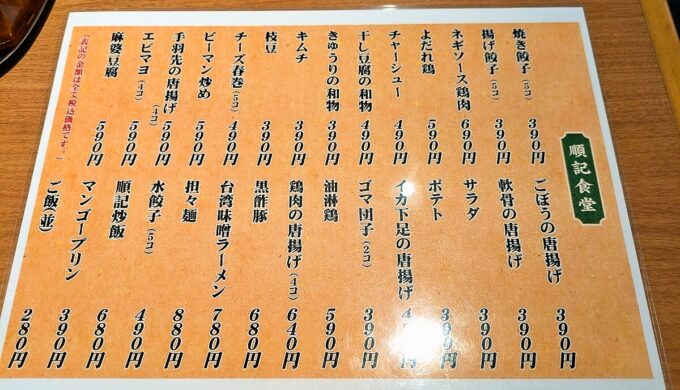 順記食堂
焼き餃子(5コ) 390円
揚げ餃子(5コ) 390円
ネギソース鶏肉 690円
よだれ鶏 590円
チャーシュー 490円
干し豆腐の和物 490円
きゅうりの和物 390円
キムチ 390円
枝豆 390円
チーズ春巻(5コ) 490円
ピーマン炒め 590円
手羽先の唐揚げ(4コ) 590円
エビマヨ(4コ) 590円
麻婆豆腐 590円
"表記の金額は全て税込価格です。"
ごぼうの唐揚げ 390円
軟骨の唐揚げ 390円
サラダ 390円
ポテト 390円
イカ下足の唐揚げ
ゴマ団子(2コ) 390円
油淋鶏 590円
鶏肉の唐揚げ(4コ) 640円
黒酢豚 680円
台湾味噌ラーメン 780円
担々麺 880円
水餃子(5コ) 490円
順記炒飯 680円
マンゴープリン 390円
ご飯(並) 280円